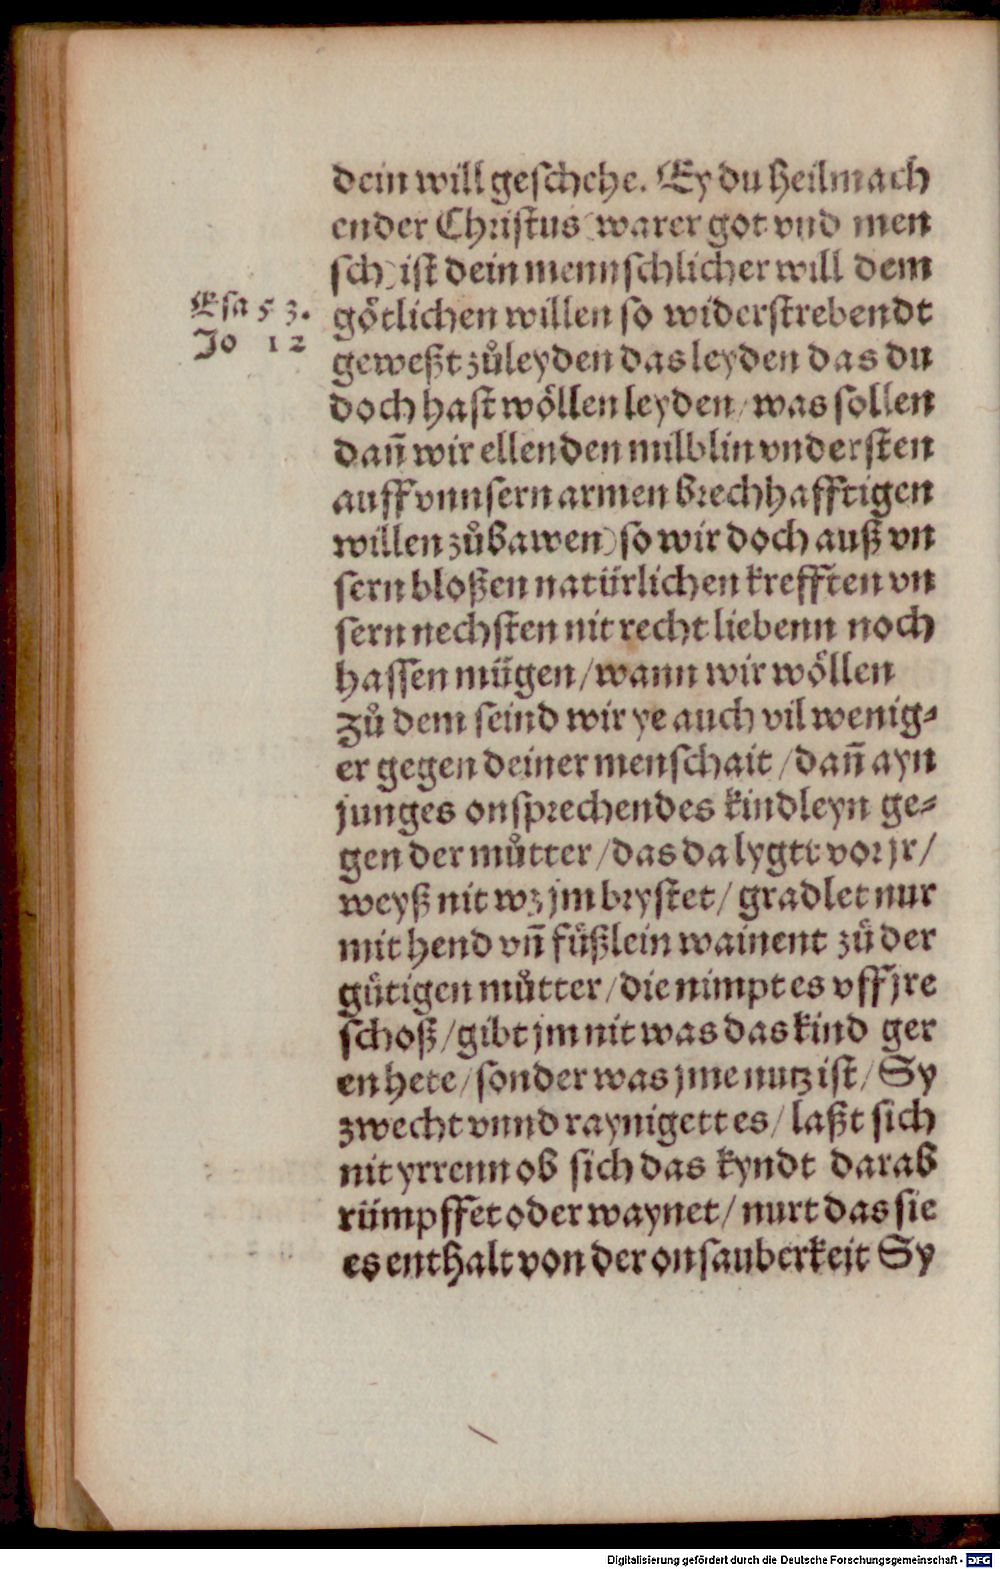 dein will geschehe. Ey du heilmach
ender Christus (warer got vnd men
sch) ist dein mennschlicher will dem
Esa 53.
Jo 12
götlichen willen so widerstrebendt
geweßt zůleyden das leyden das du
doch hast wöllen leyden / was sollen
dañ wir ellenden milblin vndersten
auff vnnsern armen brechhafftigen
willen zůbawen) so wir doch auß vn
sern bloßen natürlichen krefften vn
sern nechsten nit recht liebenn noch
hassen mügen / wann wir wöllen
Zů dem seind wir ye auch vil wenig⸗
er gegen deiner menschait / dañ ayn
junges onsprechendes kindleyn ge⸗
gen der můtter / das da lygtt vor jr /
weyß nit wz jm brystet / gradlet nur
mit hend vñ füßlein wainent zů der
gütigen můtter / die nimpt es vff jre
schoß / gibt jm nit was das kind ger
en hete / sonder was jme nutz ist / Sy
zwecht vnnd raynigett es / laßt sich
nit yrrenn ob sich das kyndt darab
rümpffet oder waynet / nurt das sie
es enthalt von der onsauberkeit Sy
Digitalisierung gefördert durch die Deutsche Forschungsgemeinschaft - DFG